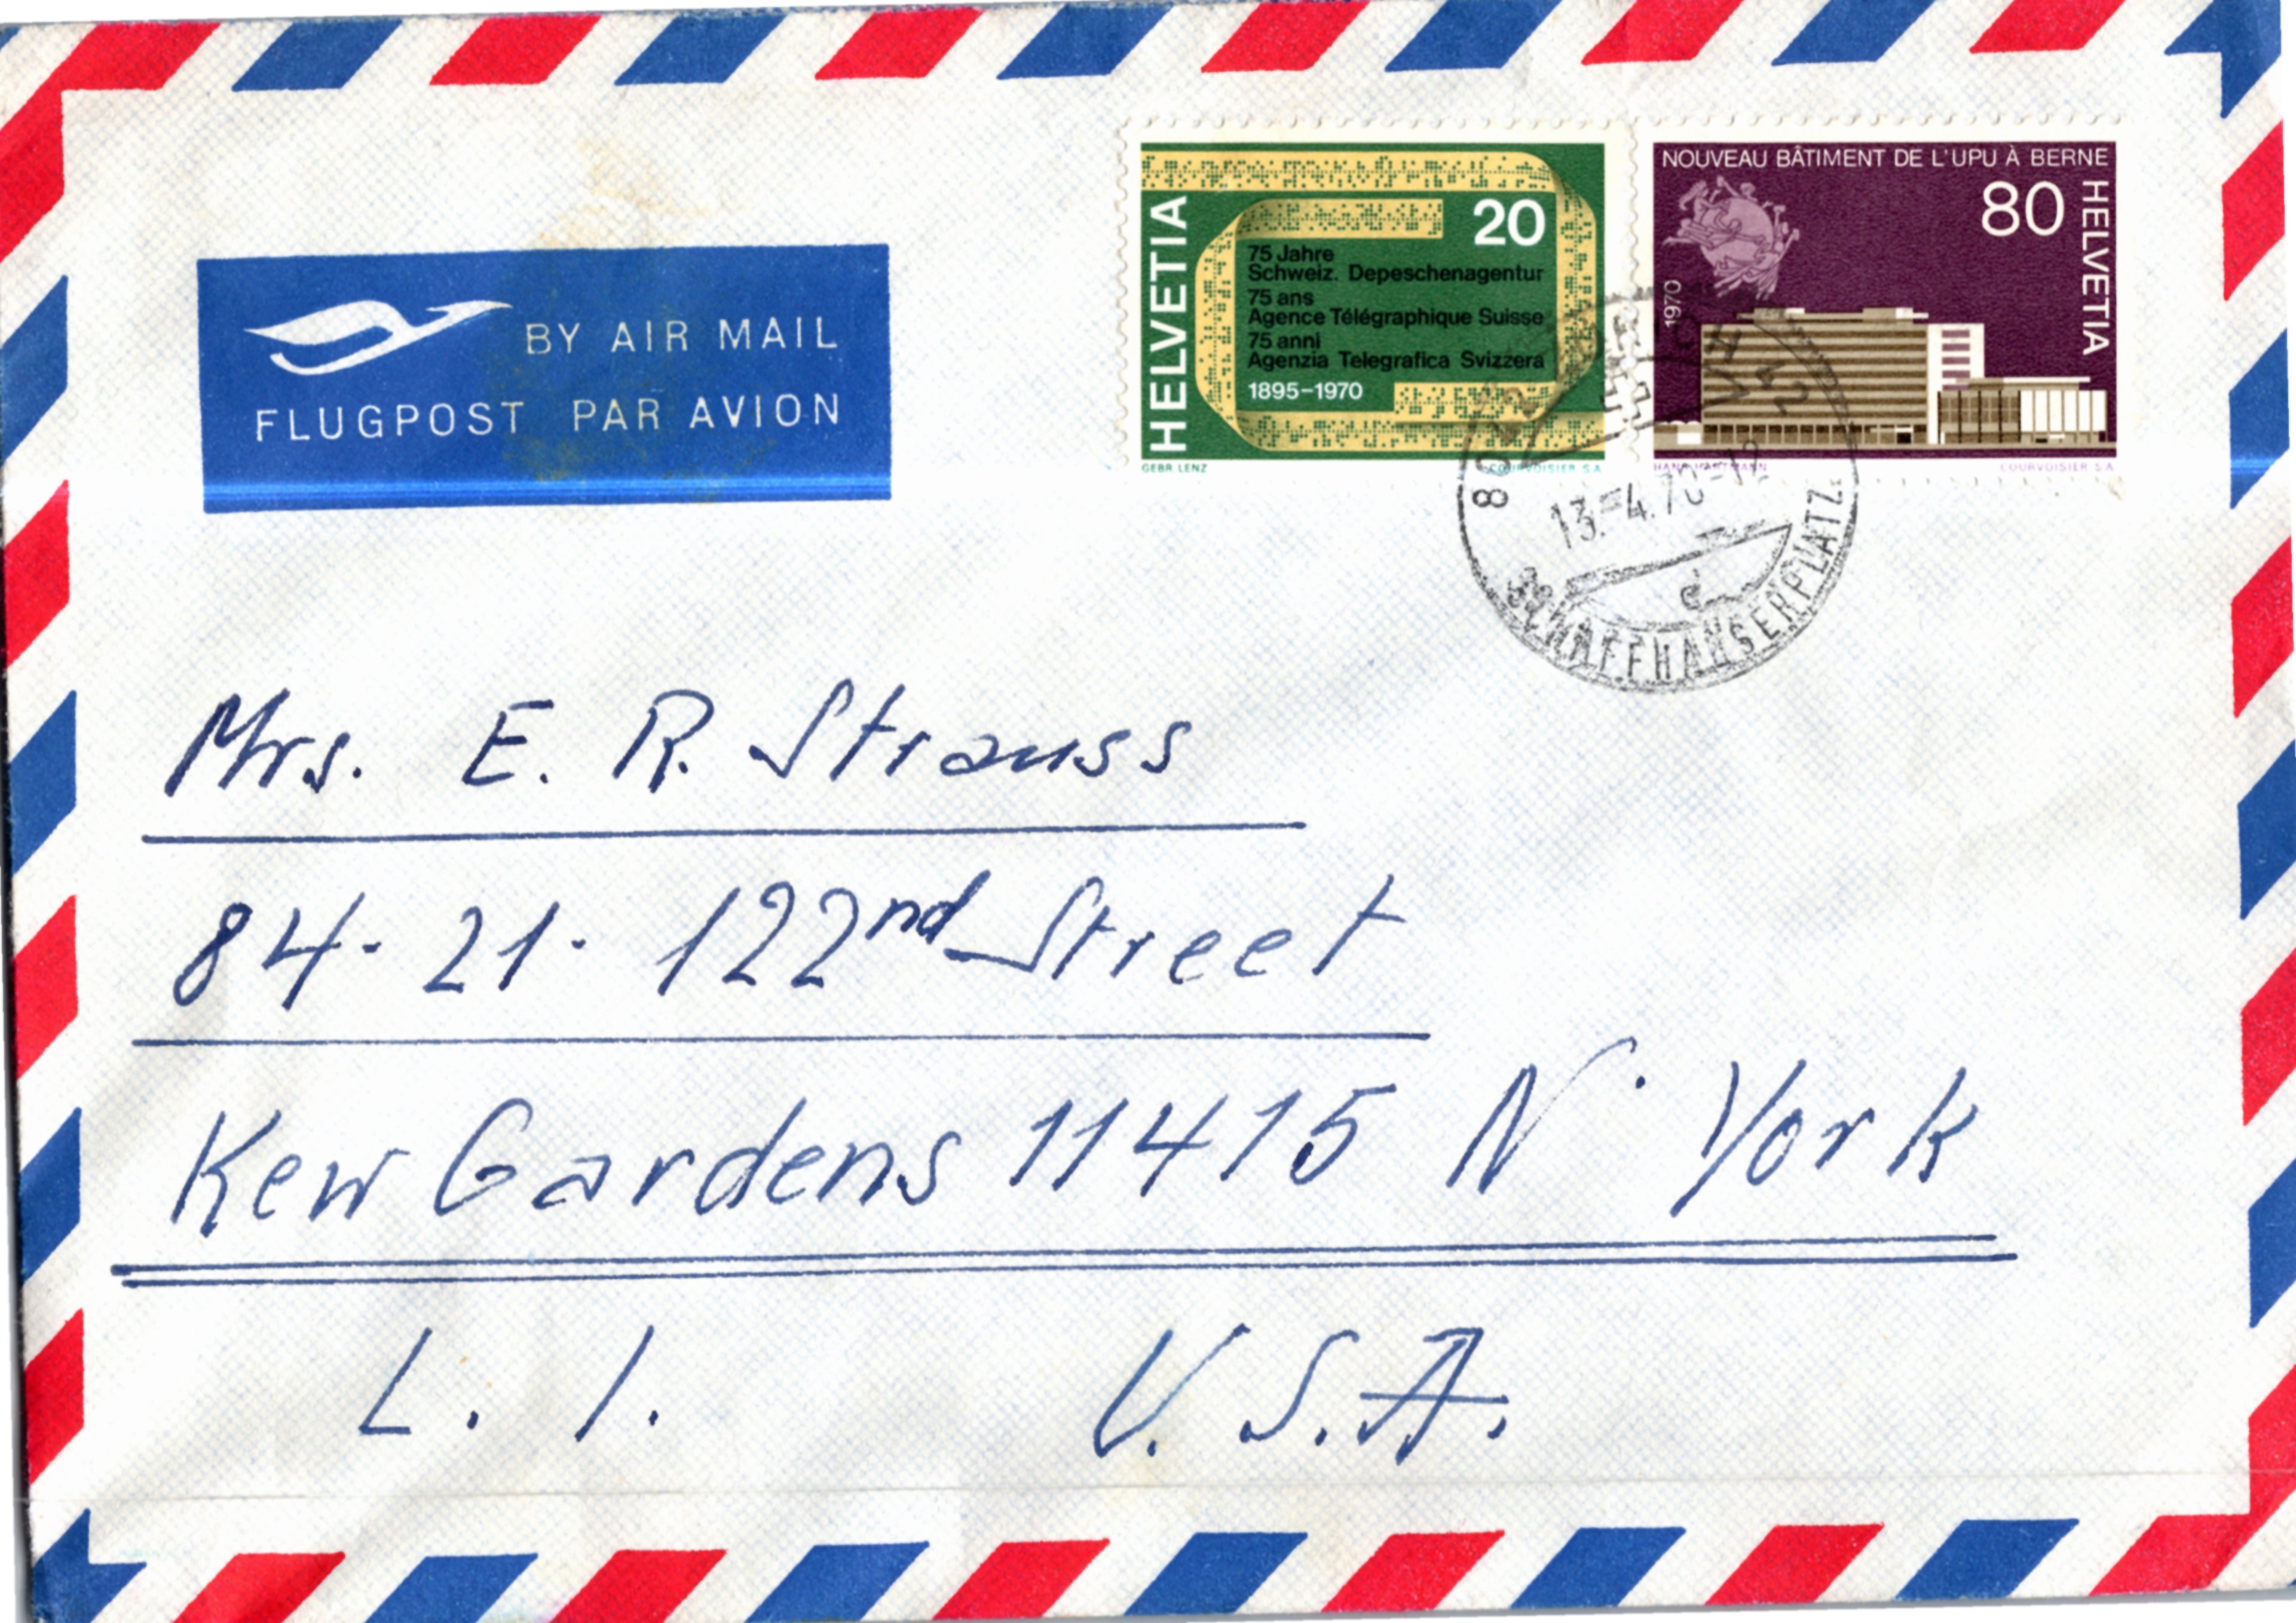 BY AIR MAIL
FLUGPOST PAR AVION
HELVETIA
20
75 Jahre
Schweiz. Depeschenagentur
75 ans
Agence Télégraphique Suisse
75 anni
Agenzia Telegrafica Svizzera
1895-1970
GEBR LENZ
COURVOISIER S.A
NOUVEAU BÂTIMENT DE L'UPU À BERNE
80
HELVETIA
1970
HANS HARTMANN
COURVOISIER S.A
13.-4.70-12
SCHAFFHAUSERPLATZ
Mrs. E. R. Strauss
84-21-122nd Street
Kew Gardens 11415 N. York
L. I. U.S.A.